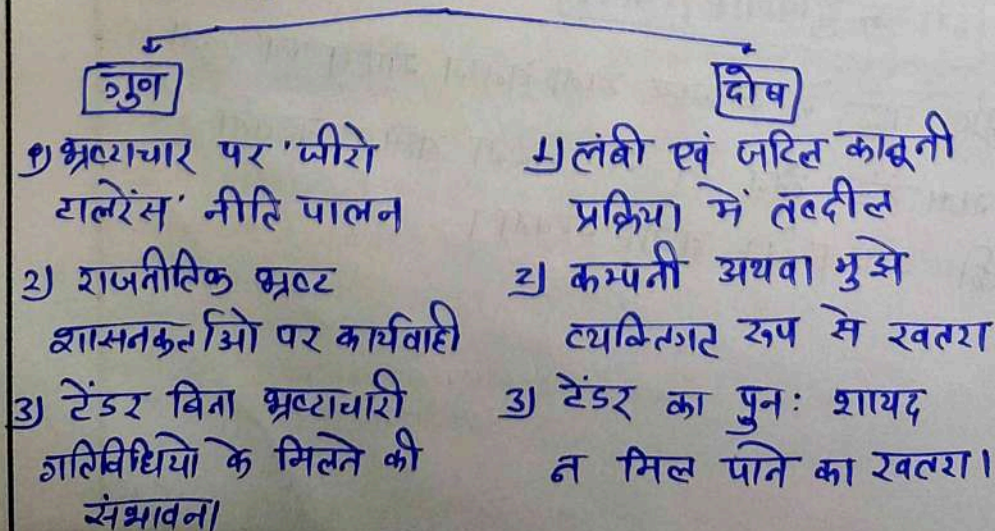 गुण
दोष
1) भ्रष्टाचार पर 'जीरो
टालरेंस' नीति पालन
2) राजनीतिक भ्रष्ट
शासनकर्ताओ पर कार्यवाही
3) टेंडर बिना भ्रष्टाचारी
गतिविधियो के मिलने की
संभावना।
1) लंबी एवं जटिल कानूनी
प्रक्रिया में तब्दील
2) कम्पनी अथवा मुझे
व्यक्तिगत रूप से खतरा
3) टेंडर का पुनः शायद
न मिल पाने का खतरा।